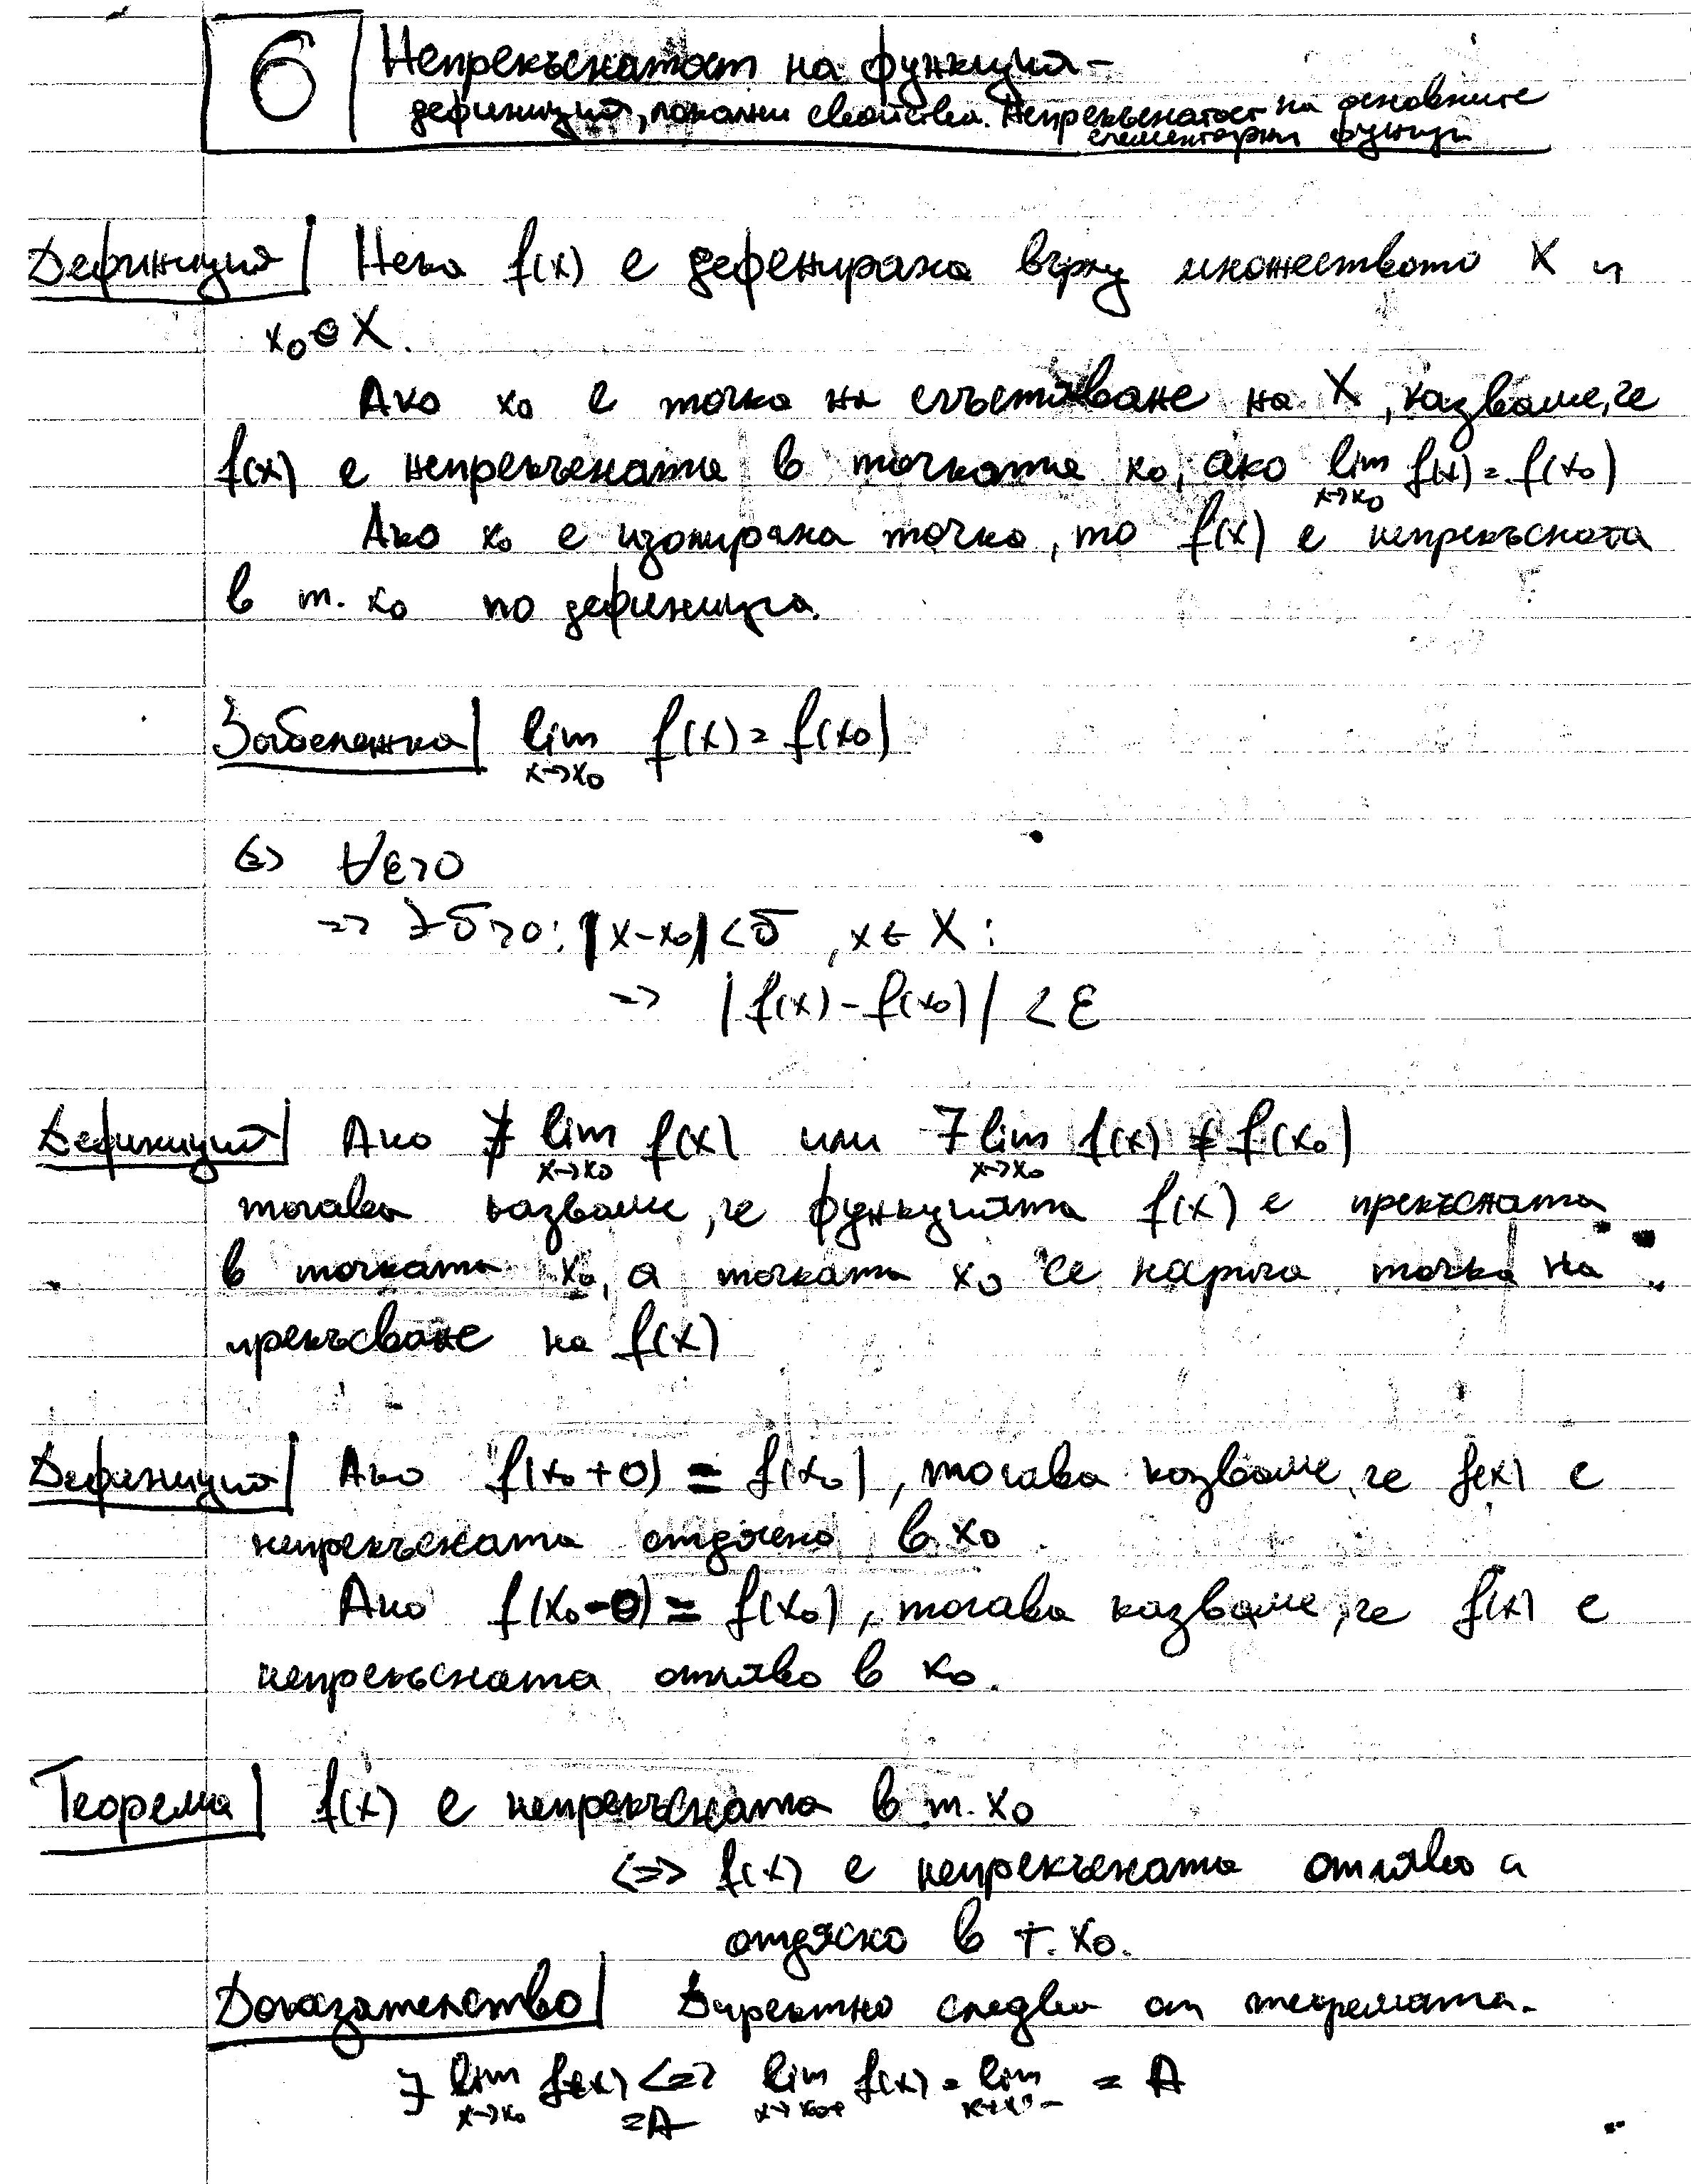 6
Непрекъснатост на функция -
дефиниция, локални свойства. Непрекъснатост на основните
елементарни функции
Дефиниция| Нека f(x) е дефенирана върху множеството X и
x₀ ∈ X.
Ако x₀ е точка на сгъстяване на X, казваме, че
f(x) е непрекъсната в точката x₀, ако lim f(x) = f(x₀)
x→x₀
Ако x₀ е изолирана точка, то f(x) е непрекъсната
в т. x₀ по дефиниция.
Забележка| lim f(x) = f(x₀)
x→x₀
<=> ∀ε>0
=> ∃δ>0: |x-x₀|<δ, x∈X:
=> |f(x) - f(x₀)| < ε
Дефиниция| Ако ∄ lim f(x) или ∃ lim f(x) ≠ f(x₀)
x→x₀ x→x₀
тогава казваме, че функцията f(x) е прекъсната
в точката x₀, а точката x₀ се нарича точка на
прекъсване на f(x)
Дефиниция| Ако f(x₀+0) = f(x₀), тогава казваме, че f(x) е
непрекъсната отдясно в x₀.
Ако f(x₀-0) = f(x₀), тогава казваме, че f(x) е
непрекъсната отляво в x₀.
Теорема| f(x) е непрекъсната в т. x₀
<=> f(x) е непрекъсната отляво и
отдясно в т. x₀.
Доказателство| Директно следва от теоремата.
∃ lim f(x) <=> lim f(x) = lim = A
x→x₀ =A x→x₀+ x→x₀-